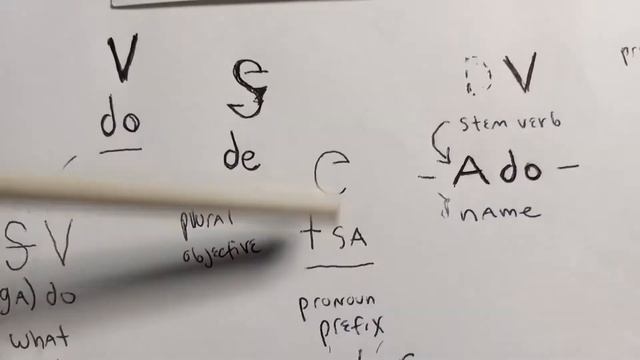 Ꮩ
do
Ꮥ
de
plural
objective
Ꮳ
tsa
pronoun
prefix
ᎠᏙ
stem verb
- Ado -
name
ᎦᏙ
ga) do
what